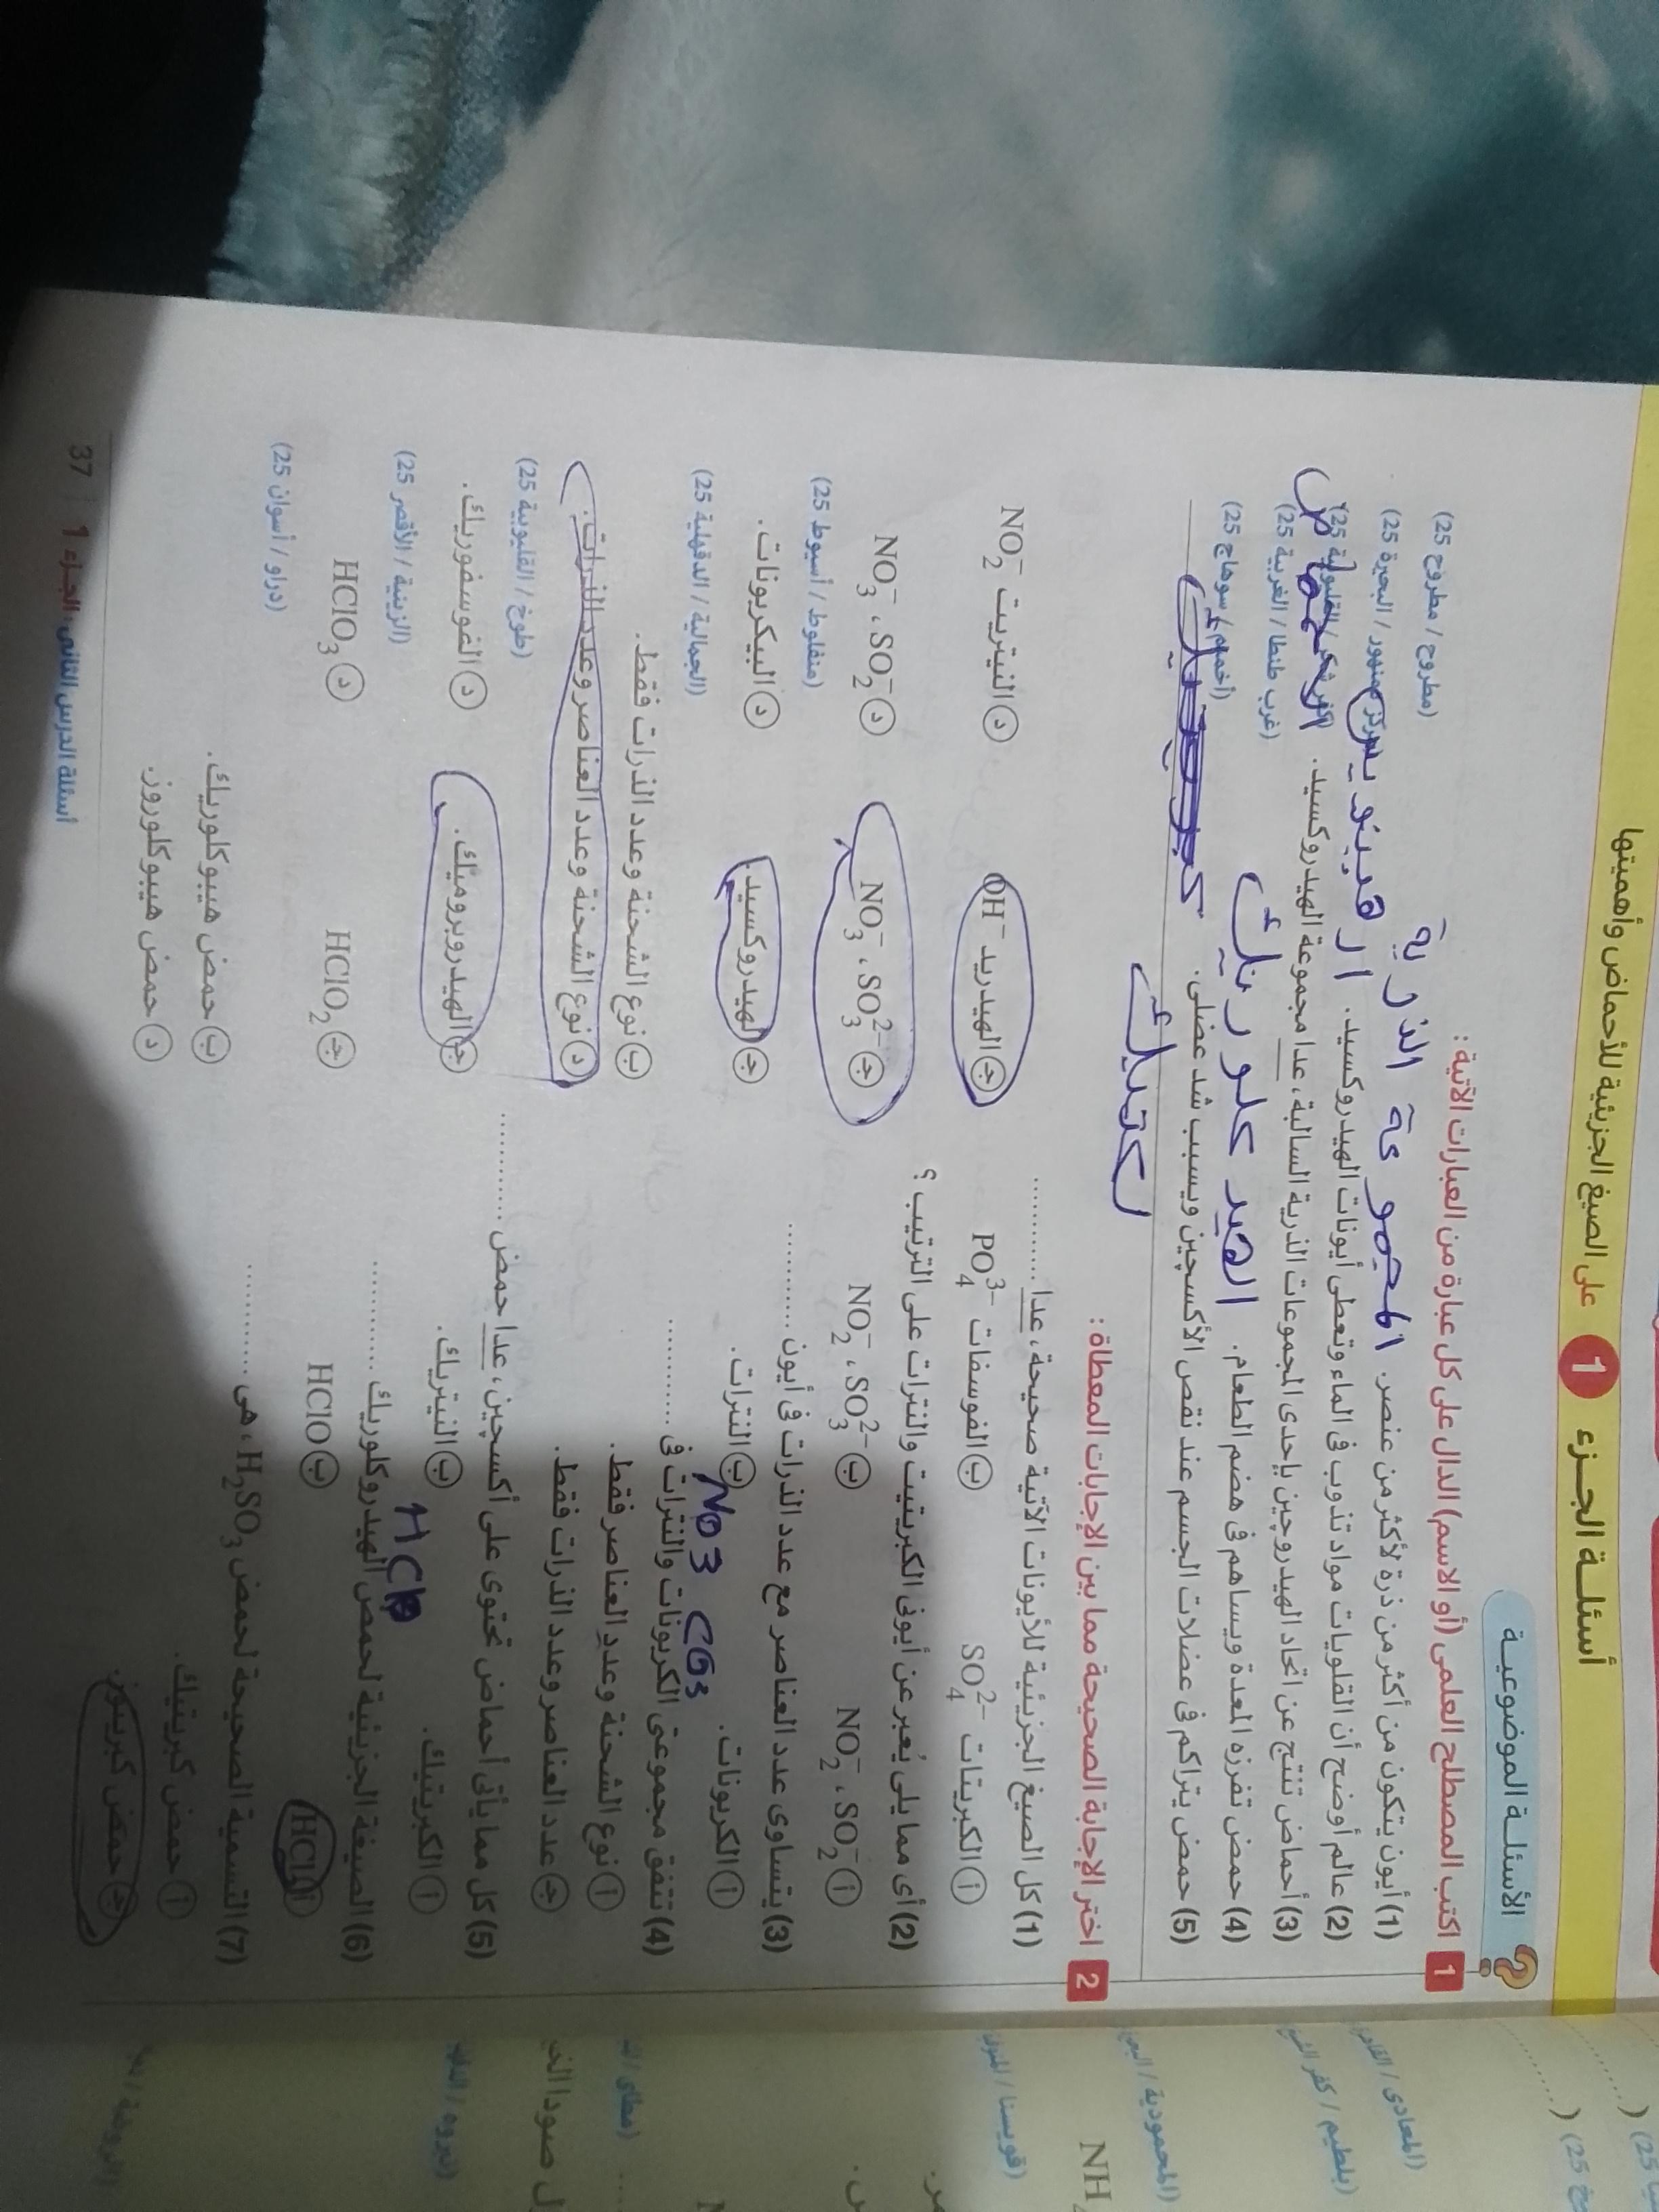 أسئلة الجزء 1 على الصيغ الجزيئية للأحماض وأهميتها
الأسئلة الموضوعية
1 اكتب المصطلح العلمى (أو الاسم) الدال على كل عبارة من العبارات الآتية :
(1) أيون يتكون من أكثر من ذرة لأكثر من عنصر. المجموعة الذرية (مطروح / مطروح 25)
(2) عالم أوضح أن القلويات مواد تذوب فى الماء وتعطى أيونات الهيدروكسيد. (مركز دمنهور / البحيرة 25)
(3) أحماض تنتج عن اتحاد الهيدروچين بإحدى المجموعات الذرية السالبة، عدا مجموعة الهيدروكسيد. (كفر شكر / القليوبية 25)
(4) حمض تفرزه المعدة ويساهم فى هضم الطعام. الهيدروكلوريك (غرب طنطا / الغربية 25)
(5) حمض يتراكم فى عضلات الجسم عند نقص الأكسچين ويسبب شد عضلى. (أخميم / سوهاج 25)
لكتيك
2 اختر الإجابة الصحيحة مما بين الإجابات المعطاة :
(1) كل الصيغ الجزيئية للأيونات الآتية صحيحة، عدا ............
أ الكبريتات SO₄²⁻ ب الفوسفات PO₄³⁻ ج الهيدريد OH⁻ د النيتريت NO₂⁻
(2) أى مما يلى يُعبر عن أيونى الكبريتيت والنترات على الترتيب ؟
أ NO₂⁻ ، SO₂⁻ ب NO₂⁻ ، SO₃²⁻ ج NO₃⁻ ، SO₃²⁻ د NO₃⁻ ، SO₂⁻
(3) يتساوى عدد العناصر مع عدد الذرات فى أيون ............ (منفلوط / أسيوط 25)
أ الكربونات. ب النترات. ج الهيدروكسيد. د البيكربونات.
NO3
(4) تتفق مجموعتى الكربونات والنترات فى ............ (الجمالية / الدقهلية 25)
أ نوع الشحنة وعدد العناصر فقط. ب نوع الشحنة وعدد الذرات فقط.
ج عدد العناصر وعدد الذرات فقط. د نوع الشحنة وعدد العناصر وعدد الذرات.
(5) كل مما يأتى أحماض تحتوى على أكسچين، عدا حمض ............ (طوخ / القليوبية 25)
أ الكبريتيك. ب النيتريك. ج الهيدروبروميك. د الفوسفوريك.
(6) الصيغة الجزيئية لحمض الهيدروكلوريك ............ (الزينية / الأقصر 25)
أ HCl ب HClO ج HClO₂ د HClO₃
(7) التسمية الصحيحة لحمض H₂SO₃ ، هى ............ (دراو / أسوان 25)
أ حمض كبريتيك. ب حمض هيبوكلوريك.
ج حمض كبريتوز. د حمض هيبوكلوروز.
37 | أسئلة الدرس الثانى : الجزء 1